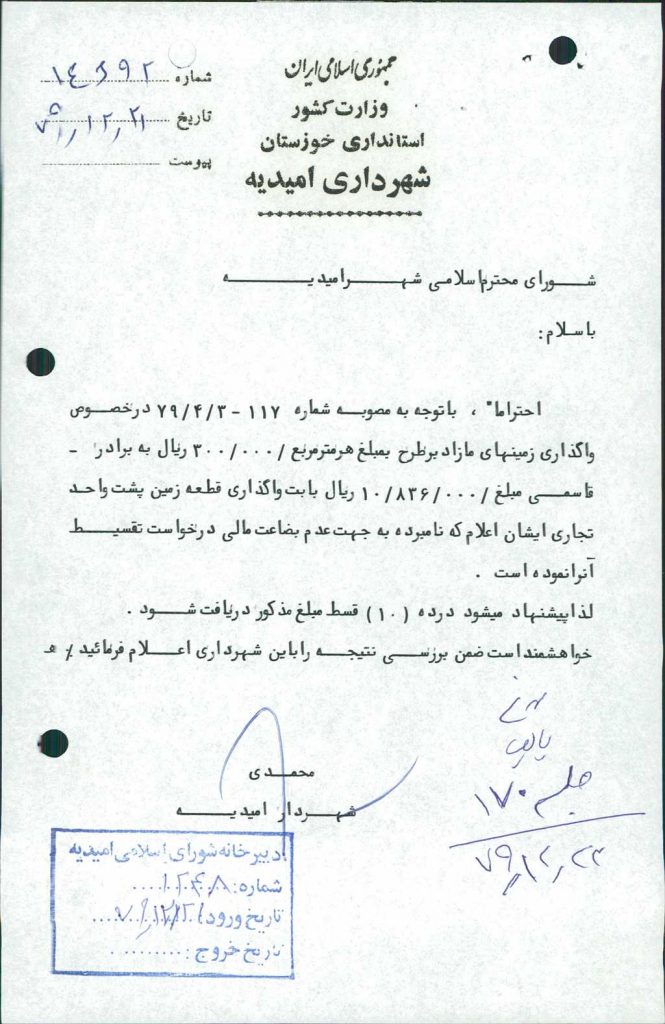 جمهوری اسلامی ایران
وزارت کشور
استانداری خوزستان
شهرداری امیدیه
شماره ۱۴۶۹۲
تاریخ ۷۹٫۱۲٫۲۱
پیوست
شورای محترم اسلامی شهر امیدیه
با سلام:
احتراما" ، باتوجه به مصوبه شماره ۱۱۷ - ۷۹/۴/۳ درخصوص
واگذاری زمینهای مازاد برطرح بمبلغ هرمترمربع /۳۰۰/۰۰۰ ریال به برادر -
قاسمی مبلغ /۱۰/۸۳۶/۰۰۰ ریال بابت واگذاری قطعه زمین پشت واحد
تجاری ایشان اعلام که نامبرده به جهت عدم بضاعت مالی درخواست تقسیط
آنرا نموده است .
لذا پیشنهاد میشود درده (۱۰) قسط مبلغ مذکور دریافت شود .
خواهشمند است ضمن بررسی نتیجه را باین شهرداری اعلام فرمائید / ه
محمدی
شهردار امیدیه
جلسه ۱۷۰
۷۹٫۱۲٫۲۳
دبیرخانه شورای اسلامی امیدیه
شماره:
تاریخ ورود:
تاریخ خروج: